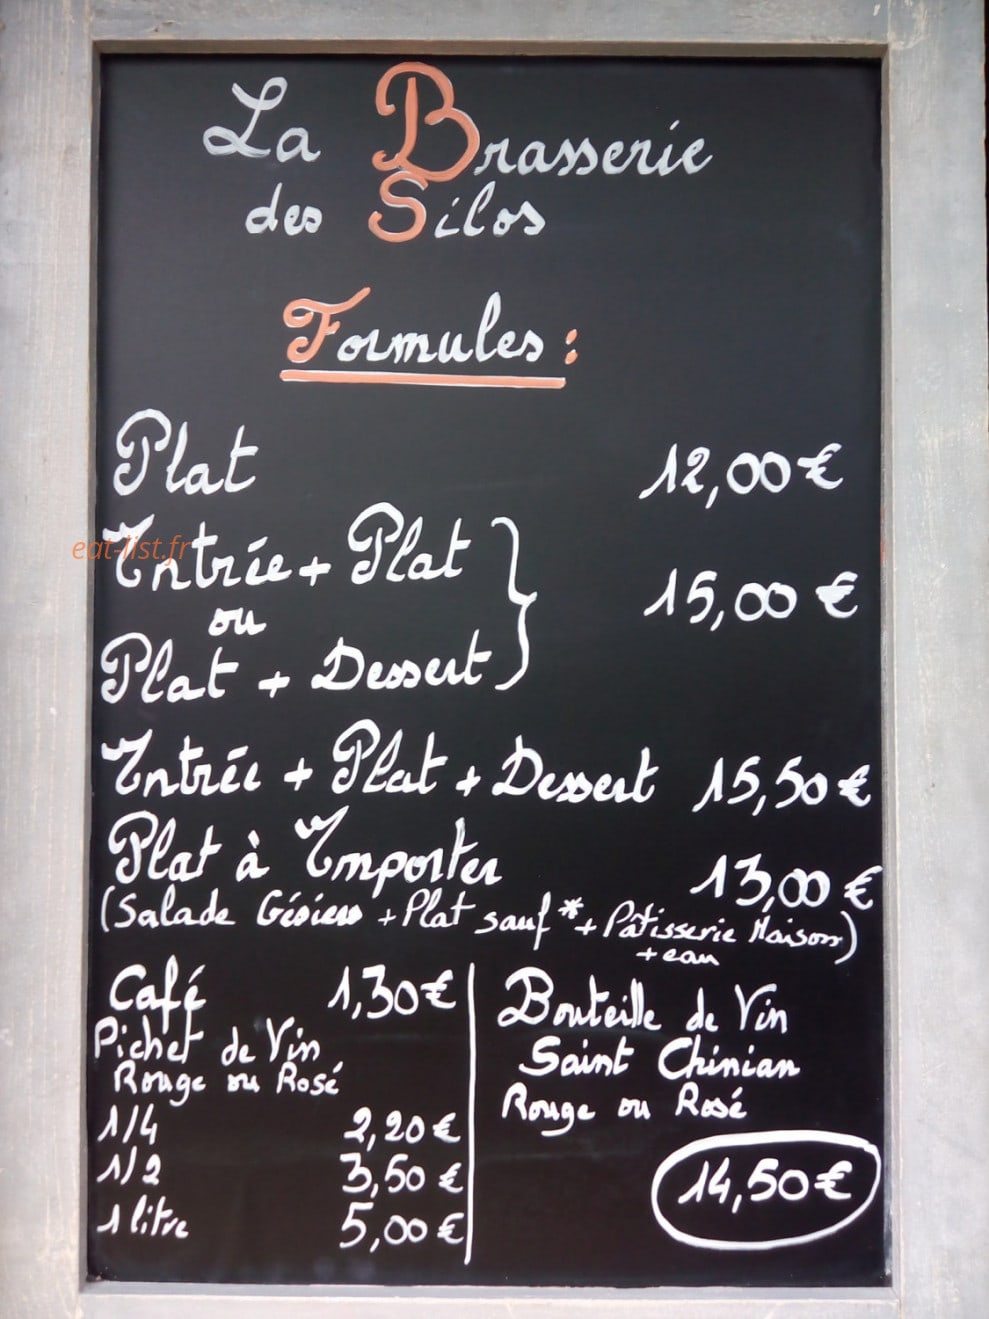 La Brasserie
des Silos
Formules :
Plat 12,00 €
eat-list.fr
Entrée + Plat
ou
15,00 €
Plat + Dessert
Entrée + Plat + Dessert 15,50 €
Plat à Importer 13,00 €
(Salade Gésiers + Plat sauf * + Pâtisserie Maison)
+ eau
Café 1,30 €
Pichet de Vin
Rouge ou Rosé
1/4 2,20 €
1/2 3,50 €
1 litre 5,00 €
Bouteille de Vin
Saint Chinian
Rouge ou Rosé
14,50 €